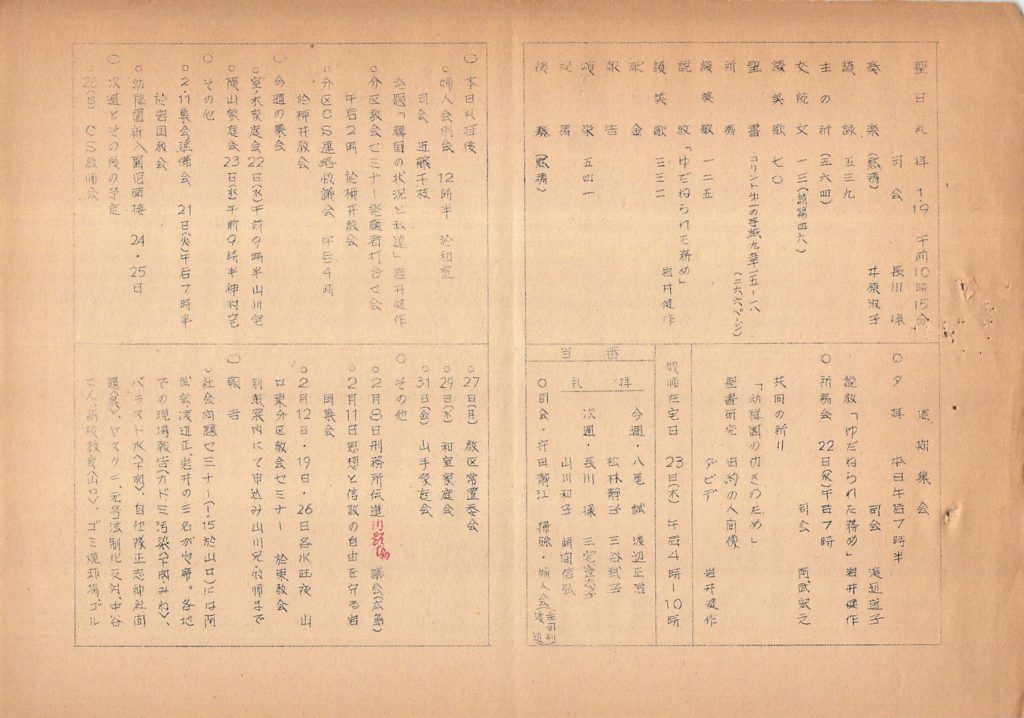 聖日礼拝 1.19 午前10時15分
司会 長川 操
奏楽 (黙祷) 井原淑子
讃詠 五三九
主の祈 (五六四)
交読文 一三(詩篇四六)
讃美歌 七〇
聖書 コリント第一の手紙九章一五-一八
(二六六ページ)
祈祷
讃美歌 一二五
説教 「ゆだねられた務め」
岩井健作
讃美歌 三三二
献金
報告
頌栄 五四一
祝祷
後奏 (黙祷)
週期集会
○夕拝 本日午后7時半
司会 渡辺道子
説教「ゆだねられた務め」 岩井健作
○祈祷会 22日(水)午后7時
司会
共同の祈り
「幼稚園の働きのため」
聖書研究 旧約の人間像
ダビデ 岩井健作
牧師在宅日 23日(木) 午后4時-10時
当番
礼拝
今週・八尾 誠 渡辺正治
松林静子 三谷
次週・長川 操 三宅
山川和子 崎間信弘
○司会・守田静江 掃除・婦人会
○本日礼拝後
○婦人会例会 12時半 於和室
司会 近藤千枝
発題「韓国の状況と私達」岩井健作
○分区教会セミナー発題者打合せ会
午后2時 於柳井教会
○分区CS連絡協議会 午后4時
於柳井教会
○今週の集会
○室木家庭会22日(水)午前9時半山川宅
○横山家庭会23日(木)午前9時半神村宅
○その他
○2.11集会準備会 21日(火)午后7時半
於岩国教会
○幼稚園新入園児面接 24・25日
○次週とその後の予定
○26(日) CS教師会
○27日(月) 教区常置委会
○29日(水) 和室家庭会
○31日(金) 山手家庭会
○その他
○2月8日刑務所伝道 議会(広島)
○2月11日思想と信教の自由を守る岩
国集会
○2月12日・19日・26日各水旺夜 山
口東分区教会セミナー 於東教会
別紙案内にて申込み山川兄牧師まで
○報告
○社会問題セミナー(1・15於山口)には阿
武会渡辺正、岩井の三名が出席。各地
での現場報告(カドミ汚染
バラスト水(下松)、自衛隊正志神社訴
ヤスクニ・元号法制化反対、中谷
さん、高校教育(山口)、ゴミ焼却場ゴル